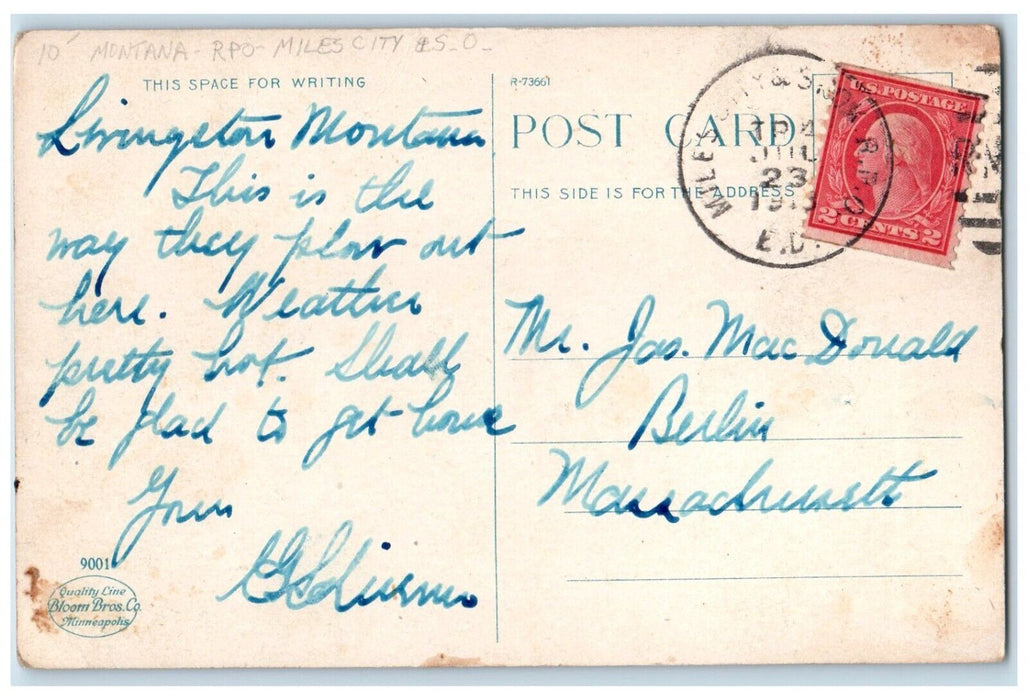 10¢ MONTANA - RPO - MILES CITY & S. O.
THIS SPACE FOR WRITING
Livingston Montana
This is the
way they plow out
here. Weather
pretty hot. Shall
be glad to get home
Yours
9001
Quality Line
Bloom Bros. Co.
Minneapolis
R-73661
POST CARD
THIS SIDE IS FOR THE ADDRESS
MILES CITY & R.P.O.
TR 4
JUL
23
E.D.
U.S. POSTAGE
2 CENTS 2
Mr. Jas. Mac Donald
Berlin
Massachusetts